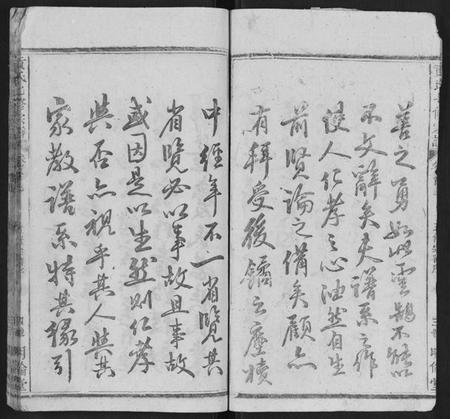 善之勇如此雲鵠不能以
不文辭矣夫譜系之作
使人仁孝之心油然自生
前賢論之備矣顧亦
有輯受後鐍之塵櫝
中經年不一省覽其
省覽必以事故且事故
或因是以生然則仁孝
與否亦視乎其人與其
家教譜系特其緣引